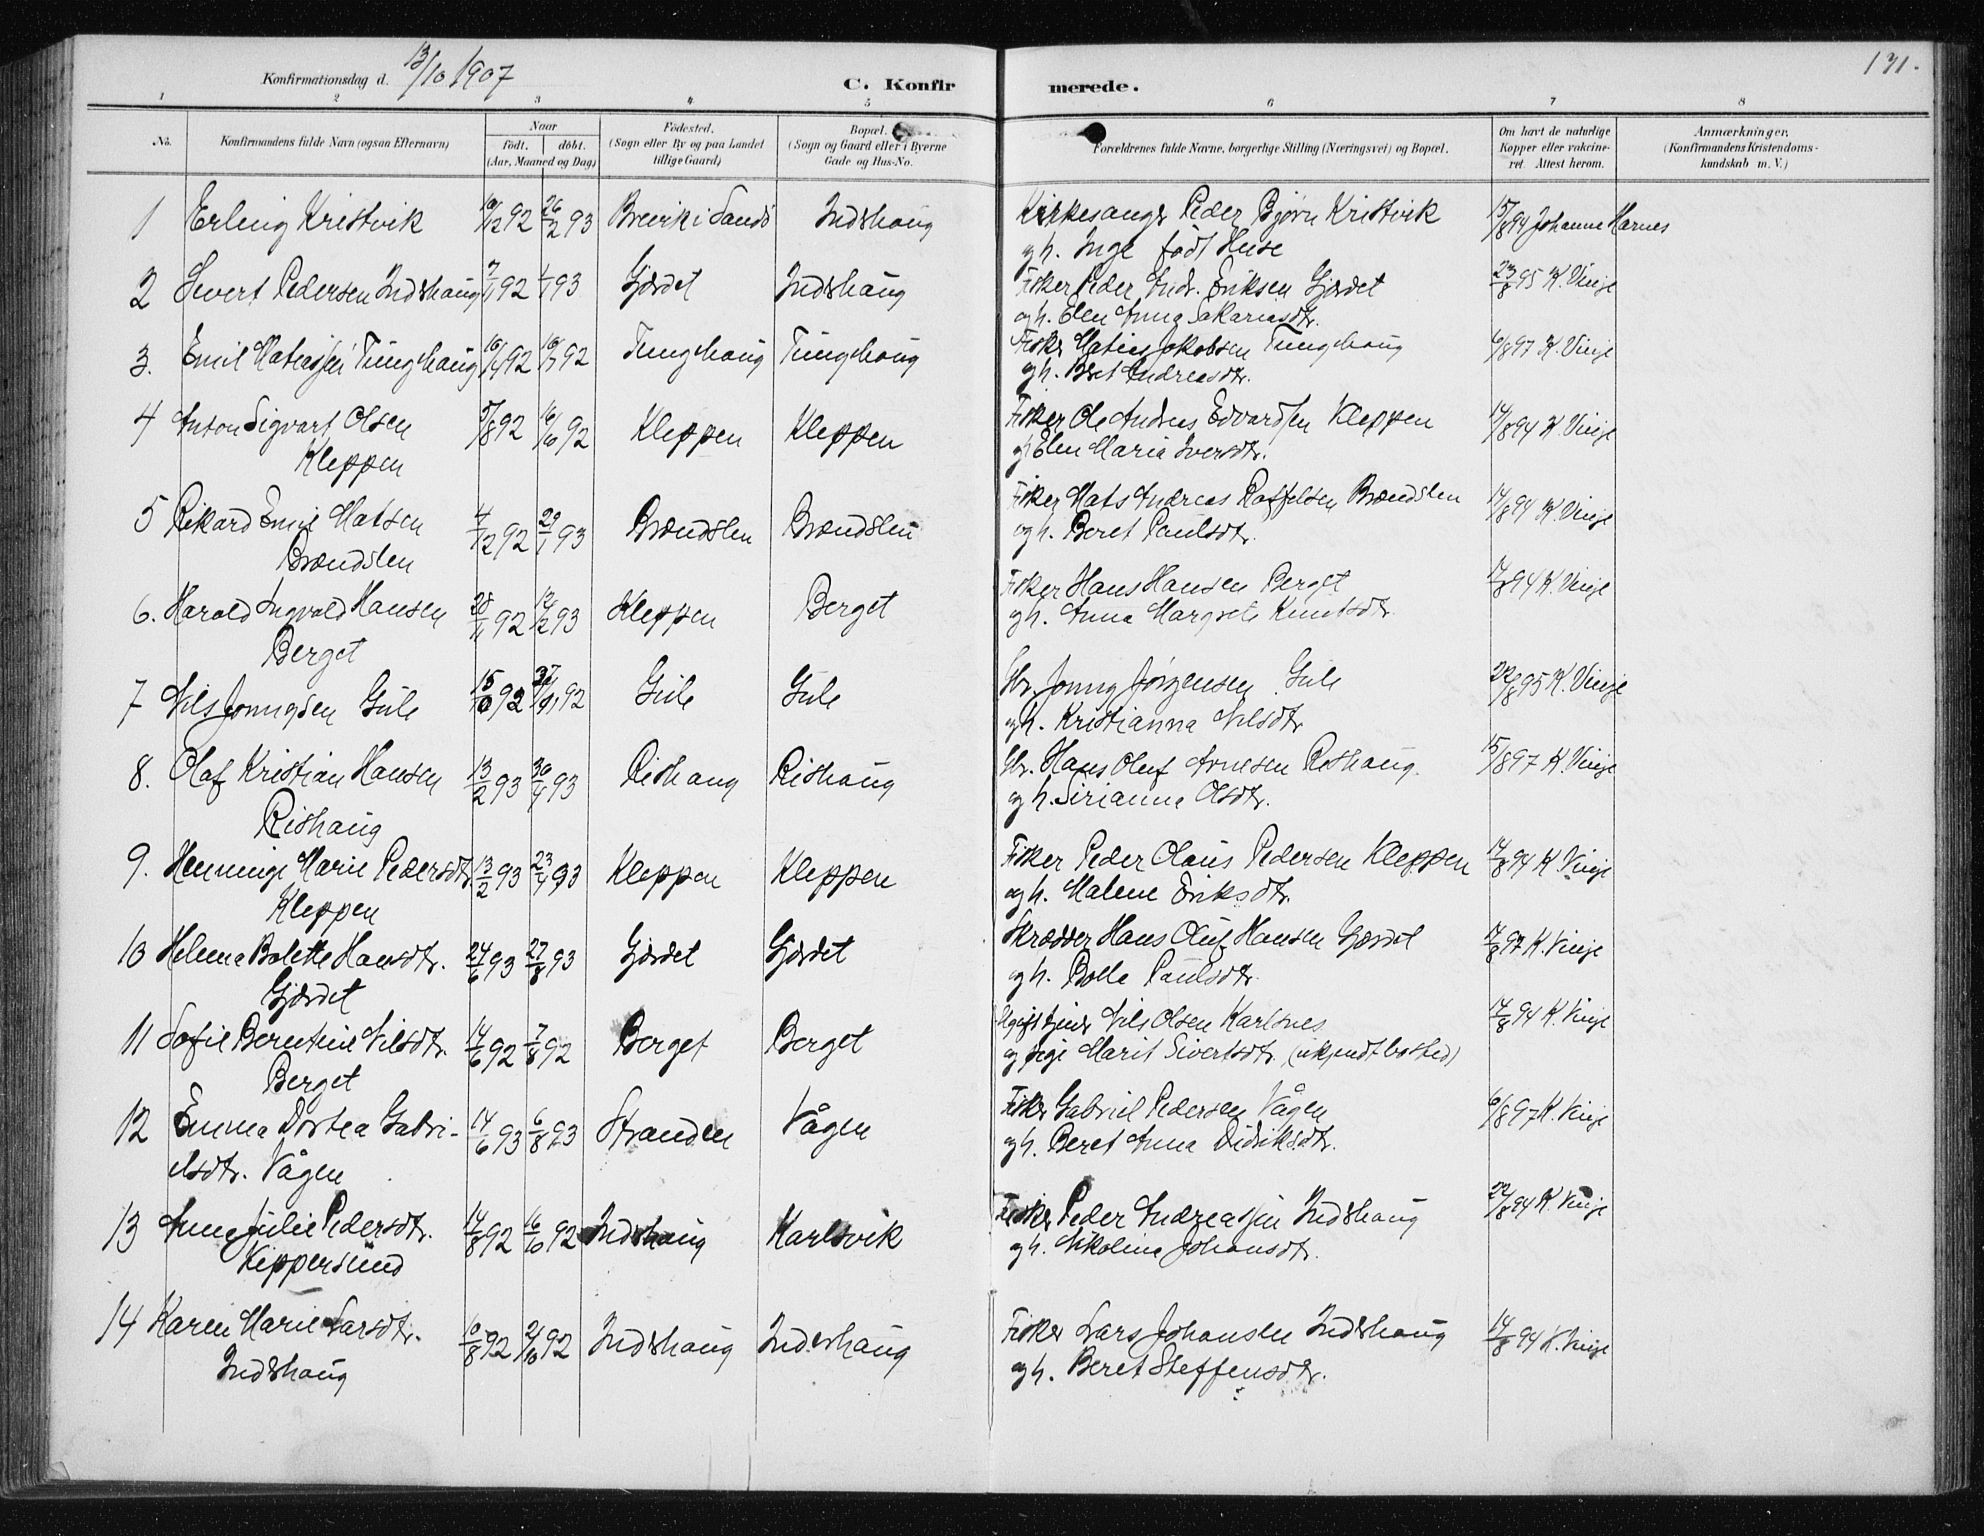 Konfirmationsdag d. 13/10 1907
C. Konfir
merede.
131.
1 2 3 4 5 6 7 8
No.
Konfirmandens fulde Navn (ogsaa Efternavn)
Naar
født. døbt.
(Aar, Maaned og Dag)
Fødested.
(Sogn eller By og paa Landet
tillige Gaard)
Bopæl.
(Sogn og Gaard eller i Byerne
Gade og Hus-No.
Forældrenes fulde Navne, borgerlige Stilling (Næringsvei) og Bopæl.
Om havt de naturlige
Kopper eller vakcine-
ret. Attest herom.
Anmærkninger.
(Konfirmandens Kristendoms-
kundskab m. V.)
1 Erling Kristvik 10/12 92 26/2 93 Brevik i Sandø Indshaug Kirkesanger Peder Bjørn Kristvik 15/8 94 Johanne Harnes
og h. Inge født Heise
2 Sivert Pedersen Indshaug 7/11 92 1/1 93 Gjærdet Indshaug Fisker Peder Andr. Eriksen Gjærdet 23/8 95 K. Vinje
og h. Elen Anna Sakariasdtr.
3. Emil Matiassen Tunghaug 10/4 92 10/7 92 Tunghaug Tunghaug Fisker Matias Jakobsen Tunghaug 6/8 97 K. Vinje
og h. Beret Andreasdtr.
4 Anton Sigvart Olsen 5/8 92 16/10 92 Kleppen Kleppen Fisker Ole Andreas Edvardsen Kleppen 14/8 94 K. Vinje
Kleppen og h. Elen Maria Iversdtr.
5 Rikard Emil Matsen 4/12 92 29/1 93 Brændslen Brændslen Fisker Mats Andreas Roffelsen Brændslen 14/8 94 K. Vinje
Brændslen og h. Beret Paulsdtr.
6. Harald Ingvald Hansen 28/11 92 12/2 93 Kleppen Berget Fisker Hans Hansen Berget 14/8 94 K. Vinje
Berget og h. Anna Margrete Knutsdtr.
7 Nils Jonnysen Gule 92 92 Gule Gule Gbr. Jonny Jørgensen Gule 22/8 95 K. Vinje
og h. Kristianna Nilsdtr.
8. Olaf Kristian Hansen 13/2 93 30/4 93 Rishaug Rishaug Gbr. Hans Oluf Arnesen Rishaug. 15/8 97 K. Vinje
Rishaug og h. Sirianna Olsdtr.
9. Henninge Marie Pedersdtr. 13/2 93 23/4 93 Kleppen Kleppen Fisker Peder Olaus Pedersen Kleppen 14/8 94 K. Vinje
Kleppen og h. Malene Eriksdtr.
10 Helena Bolette Hansdtr. 24/6 93 27/8 93 Gjærdet Gjærdet Skrædder Hans Oluf Hansen Gjærdet 14/8 97 K. Vinje
Gjærdet og h. Bolle Paulsdtr.
11 Sofie Berntine Nilsdtr. 14/6 92 7/8 92 Berget Berget Ugift tjener Nils Olsen Karlsnes 14/8 94 K. Vinje
Berget og pige Marit Sivertsdtr. (ukjendt bosted)
12 Emma Dortea Gabri- 14/6 93 6/8 93 Stranden Vågen Fisker Gabriel Pedersen Vågen 6/8 97 K. Vinje
elsdtr. Vågen og h. Beret Anna Didriksdtr.
13 Anne Julie Pedersdtr. 14/8 92 16/10 92 Indshaug Karlsvik Fisker Peder Andreassen Indshaug 22/8 94 K. Vinje
Kippersund og h. Nikoline Johansdtr.
14 Karen Marie Larsdtr. 6/8 92 2/10 92 Indshaug Indshaug Fisker Lars Johansen Indshaug 14/8 94 K. Vinje
Indshaug og h. Beret Steffensdtr.